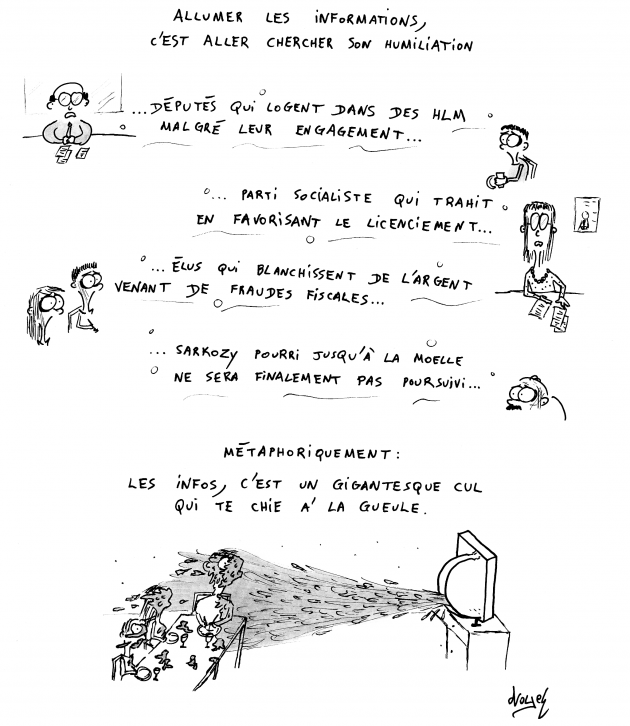 ALLUMER LES INFORMATIONS,
C'EST ALLER CHERCHER SON HUMILIATION
...DÉPUTÉS QUI LOGENT DANS DES HLM
MALGRÉ LEUR ENGAGEMENT...
... PARTI SOCIALISTE QUI TRAHIT
EN FAVORISANT LE LICENCIEMENT...
...ÉLUS QUI BLANCHISSENT DE L'ARGENT
VENANT DE FRAUDES FISCALES...
... SARKOZY POURRI JUSQU'À LA MOELLE
NE SERA FINALEMENT PAS POURSUIVI...
MÉTAPHORIQUEMENT:
LES INFOS, C'EST UN GIGANTESQUE CUL
QUI TE CHIE A' LA GUEULE.